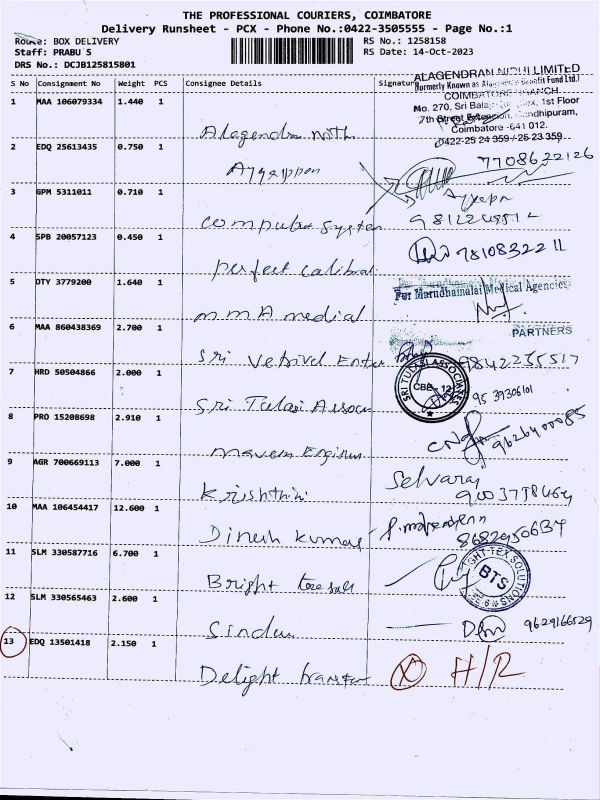 THE PROFESSIONAL COURIERS, COIMBATORE
Delivery Runsheet - PCX - Phone No.:0422-3505555 - Page No.:1
Route: BOX DELIVERY
RS No.: 1258158
Staff: PRABU S
RS Date: 14-Oct-2023
DRS No.: DCJB125815801
S No Consignment No Weight PCS Consignee Details Signature
ALAGENDRAN NIDHI LIMITED
(formerly Known as Alagendra Benefit Fund Ltd.)
COIMBATORE BRANCH
No. 270, Sri Balaji Complex, 1st Floor
7th Street Extension, Gandhipuram,
Coimbatore -641 012.
0422-25 24 359 / 25 23 359
1 MAA 106079334 1.440 1
Alagendra
2 EDQ 25613435 0.750 1
Ayyappan
7708622126
3 GPM 5311011 0.710 1
computer system
4 SPB 20057123 0.450 1
perfect
7810832211
5 DTY 3779200 1.640 1
MMA medial
For Marudhamalai Medical Agencies
PARTNERS
6 MAA 860438369 2.700 1
Sri Vetrivel Enter
9842235517
7 HRD 50504866 2.000 1
Sri Tulasi Assoc
SRI TULASI ASSOCIATES
CBE - 12
95 39306101
8 PRO 15208698 2.910 1
9626400085
9 AGR 700669113 7.000 1
Selvaraj
10 MAA 106454417 12.600 1
Dinesh kumar
8682950634
11 SLM 330587716 6.700 1
Bright
BRIGHT TEX SOLUTIONS
BTS
12 SLM 330565463 2.600 1
Sindu
9629166529
13 EDQ 13501418 2.150 1
Delight
X H/R